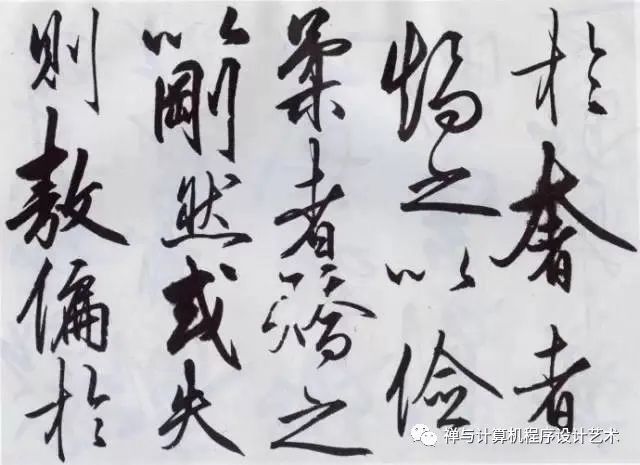 於奢者
矯之以儉
柔者矯之
以剛然或失
則敖偏於
禅与计算机程序设计艺术